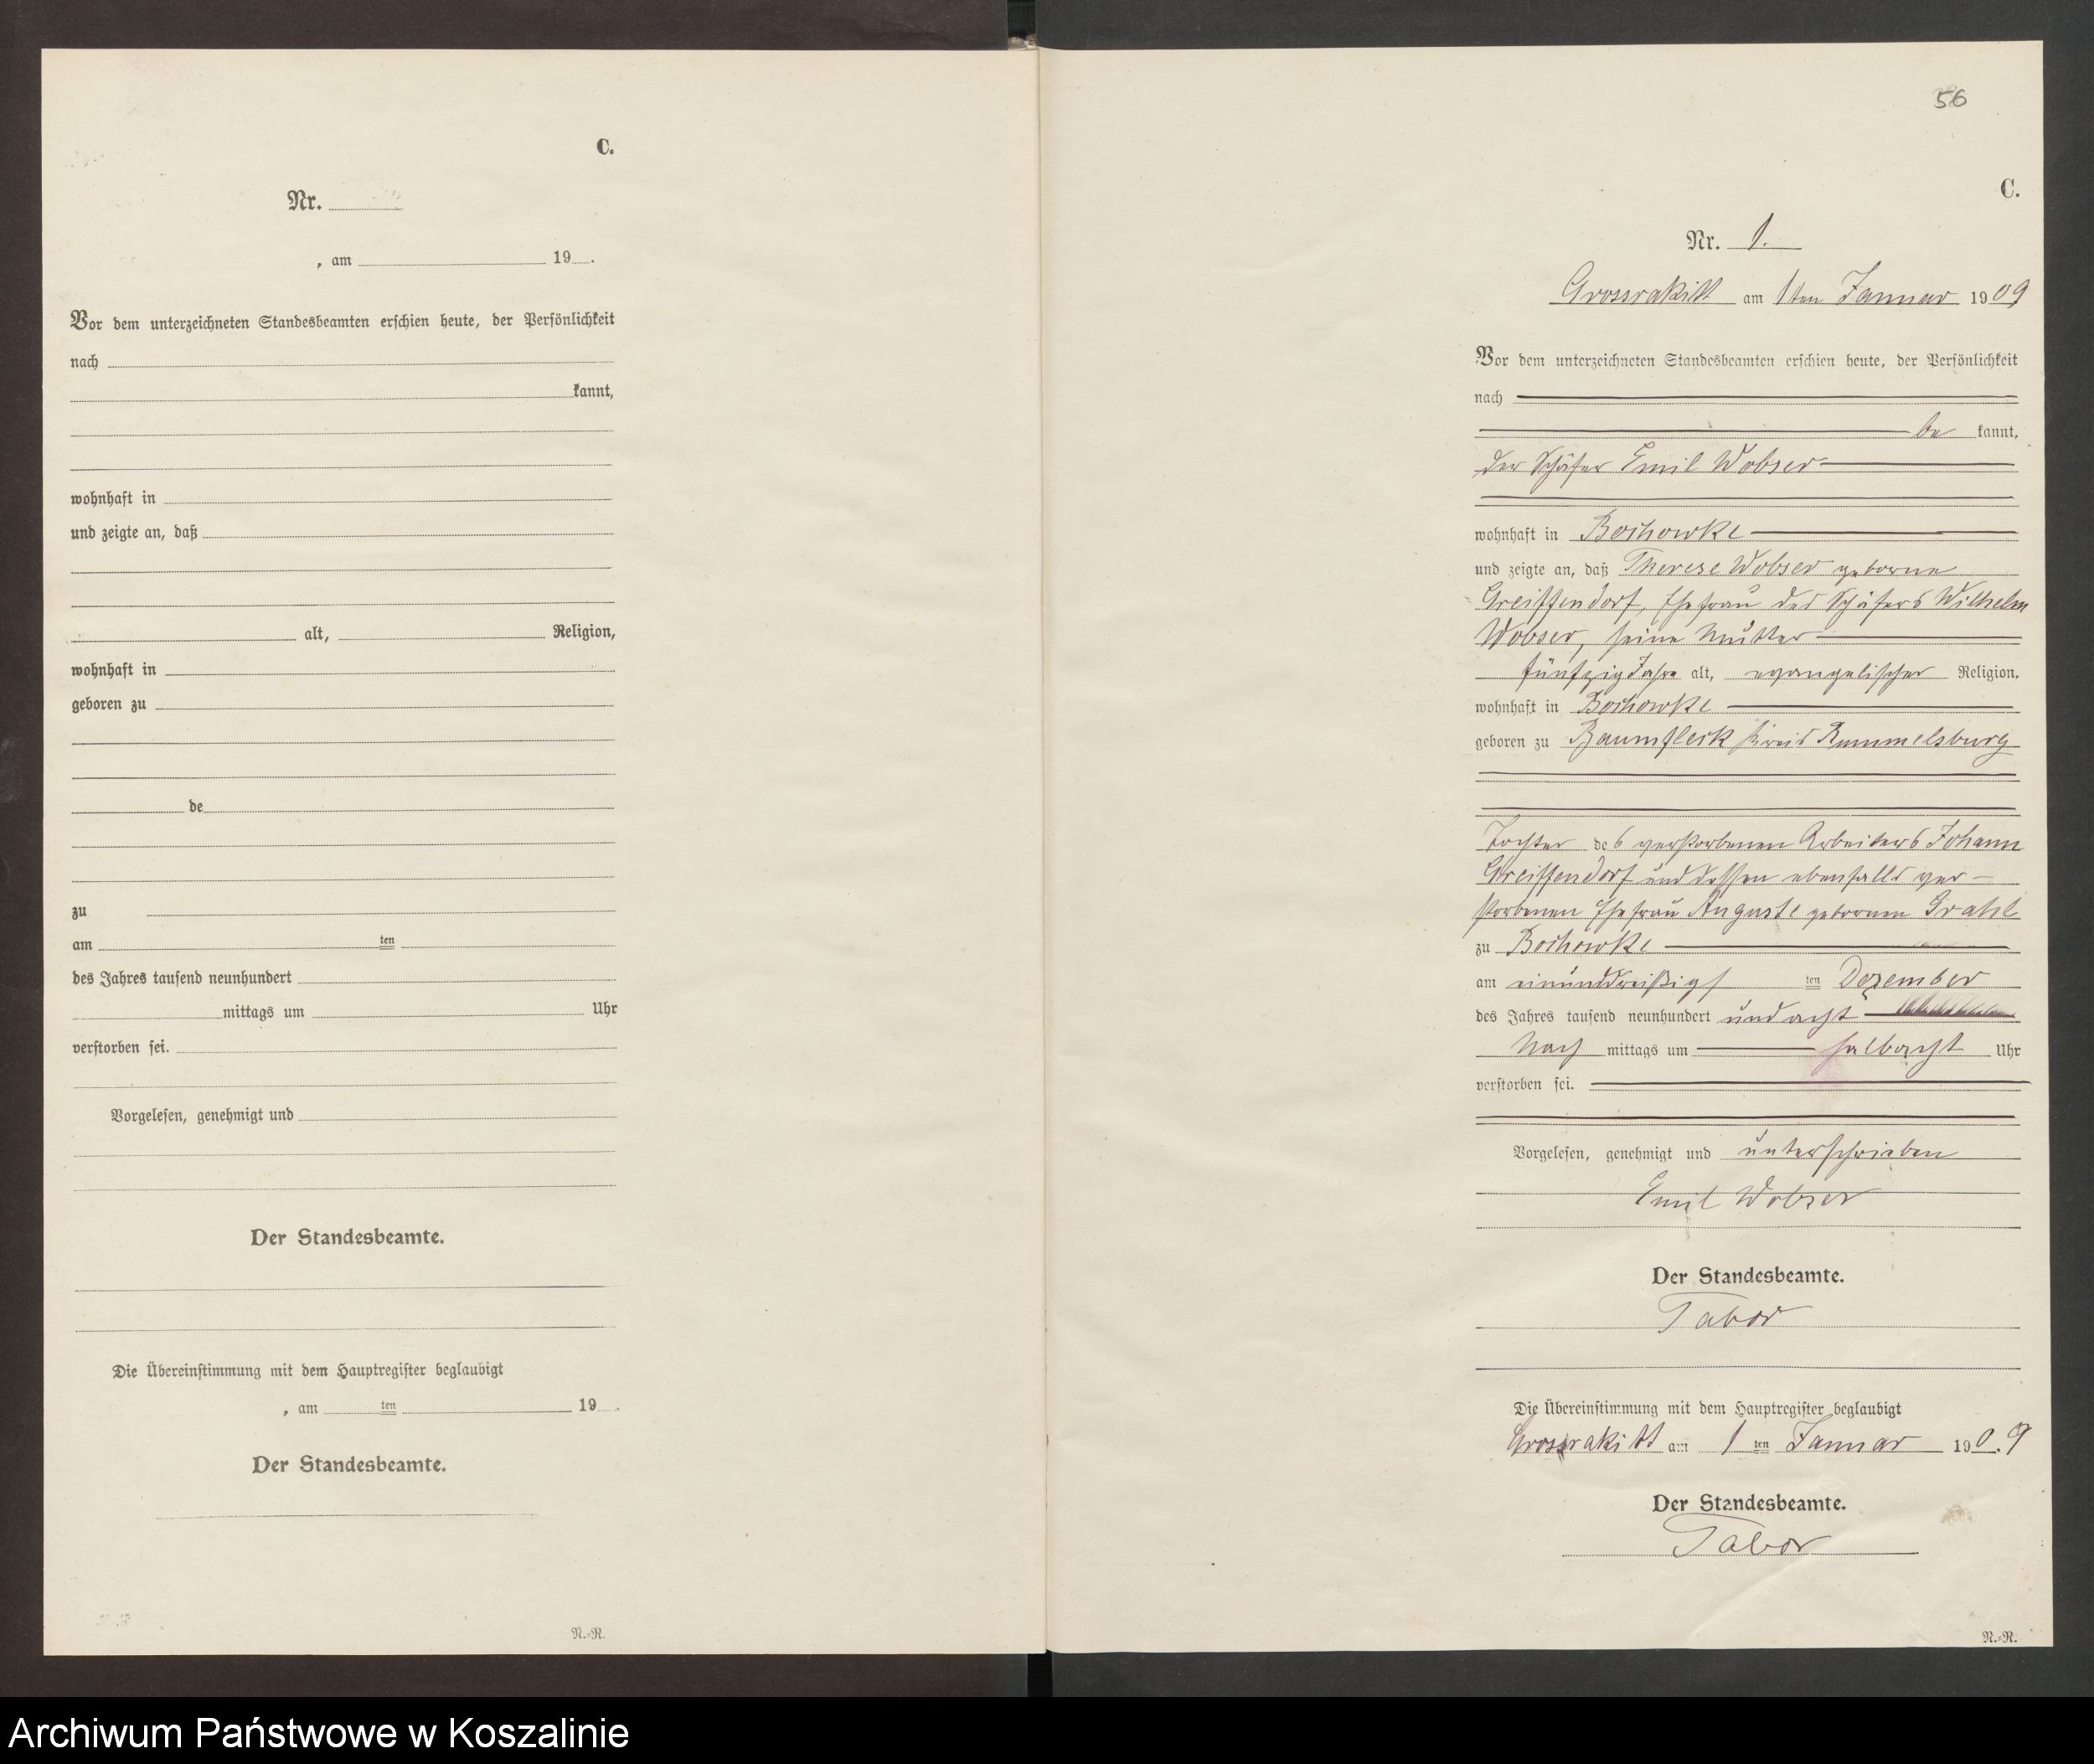 C.
Nr.
, am 19 .
Vor dem unterzeichneten Standesbeamten erschien heute, der Persönlichkeit
nach
kannt,
wohnhaft in
und zeigte an, daß
alt, Religion,
wohnhaft in
geboren zu
de
zu
am ten
des Jahres tausend neunhundert
mittags um Uhr
verstorben sei.
Vorgelesen, genehmigt und
Der Standesbeamte.
Die Übereinstimmung mit dem Hauptregister beglaubigt
, am ten 19 .
Der Standesbeamte.
N.=R.
56
C.
Nr. 1.
Grossrakitt am 1ten Januar 1909
Vor dem unterzeichneten Standesbeamten erschien heute, der Persönlichkeit
nach
be kannt,
der Schäfer Emil Wobser
wohnhaft in Bochowke
und zeigte an, daß Therese Wobser geborne
Greiffendorf, Ehefrau des Schäfers Wilhelm
Wobser, seine Mutter
fünfzig Jahre alt, evangelischer Religion,
wohnhaft in Bochowke
geboren zu Baumfleck Kreis Rummelsburg
Tochter des verstorbenen Arbeiters Johann
Greiffendorf und dessen ebenfalls ver-
storbenen Ehefrau Auguste gebornen
zu Bochowke
am einunddreißigs ten Dezember
des Jahres tausend neunhundert und acht
Nach mittags um halbacht Uhr
verstorben sei.
Vorgelesen, genehmigt und unterschrieben
Emil Wobser
Der Standesbeamte.
Tabor
Die Übereinstimmung mit dem Hauptregister beglaubigt
Grossrakitt am 1 ten Januar 190.9
Der Standesbeamte.
Tabor
N.=R.
Archiwum Państwowe w Koszalinie